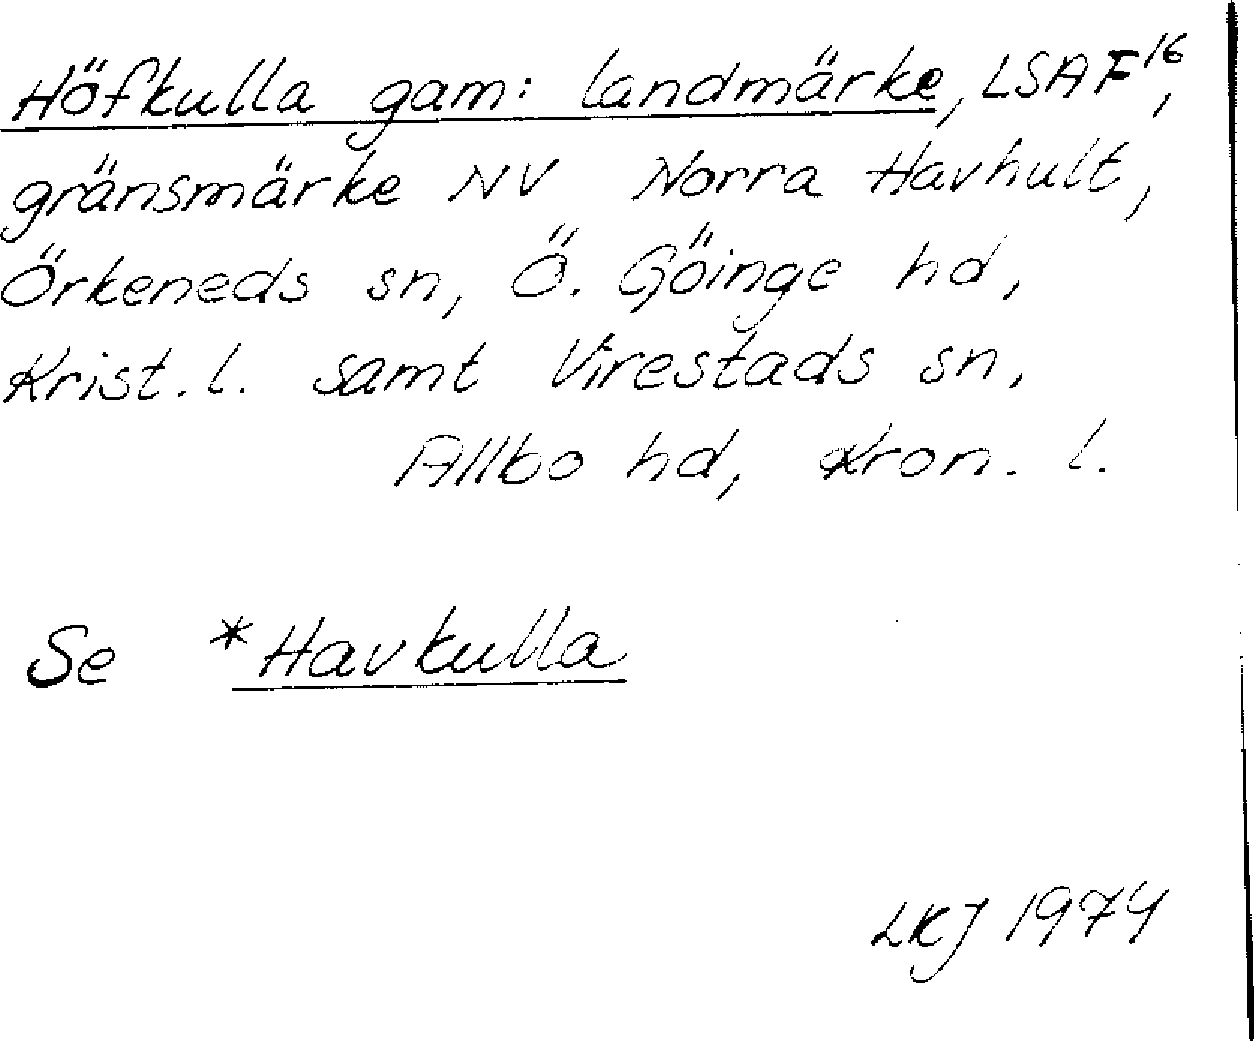 Höfkulla gam: landmärke, LSA F16,
gränsmärke NV Norra Havhult,
Örkeneds sn, Ö. Göinge hd,
Krist. l. samt Virestads sn,
Allbo hd, Kron. l.
Se *Havkulla
LKJ 1974